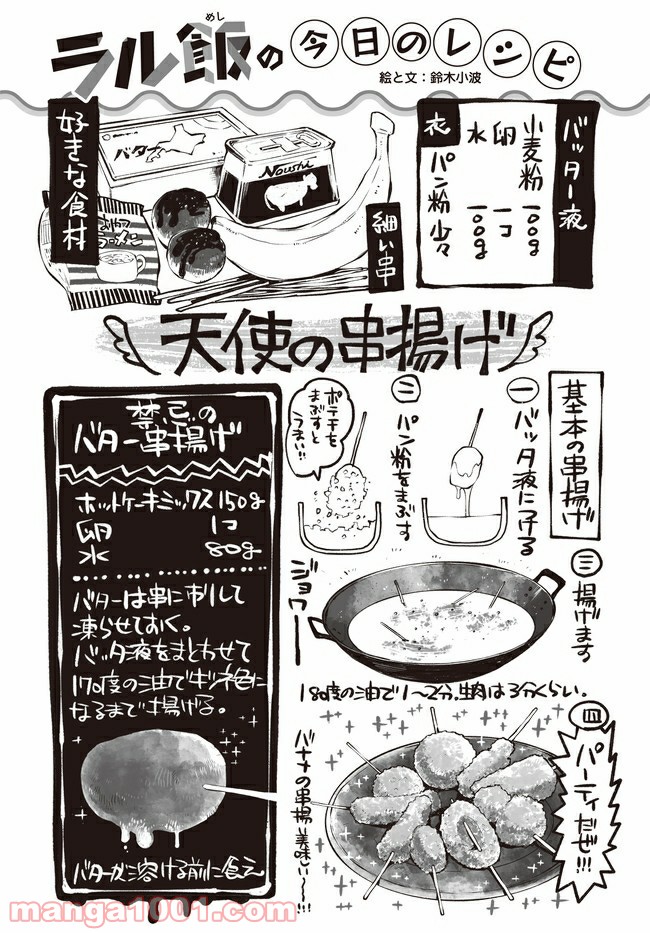 めし
ラル飯の今日のレシピ
絵と文：鈴木小波
バッター液
小麦粉 100g
卵 1コ
水 100g
衣 パン粉 少々
好きな食材
バター
Noushi
おやつラーメン
細い串
天使の串揚げ
基本の串揚げ
一 バッタ液につける
二 パン粉をまぶす
ポテチを
まぶすと
うまい!!
三 揚げます
ジョワー
180度の油で1〜2分、生肉は3分くらい。
四 パーティだぜ!!!
バナナの串揚げ美味しい〜!!!
禁忌の
バター串揚げ
ホットケーキミックス150g
卵 1コ
水 80g
バターは串に刺して
凍らせておく。
バッタ液をまとわせて
170度の油でキツネ色に
なるまで揚げる。
バターが溶ける前に食え
manga1001.com